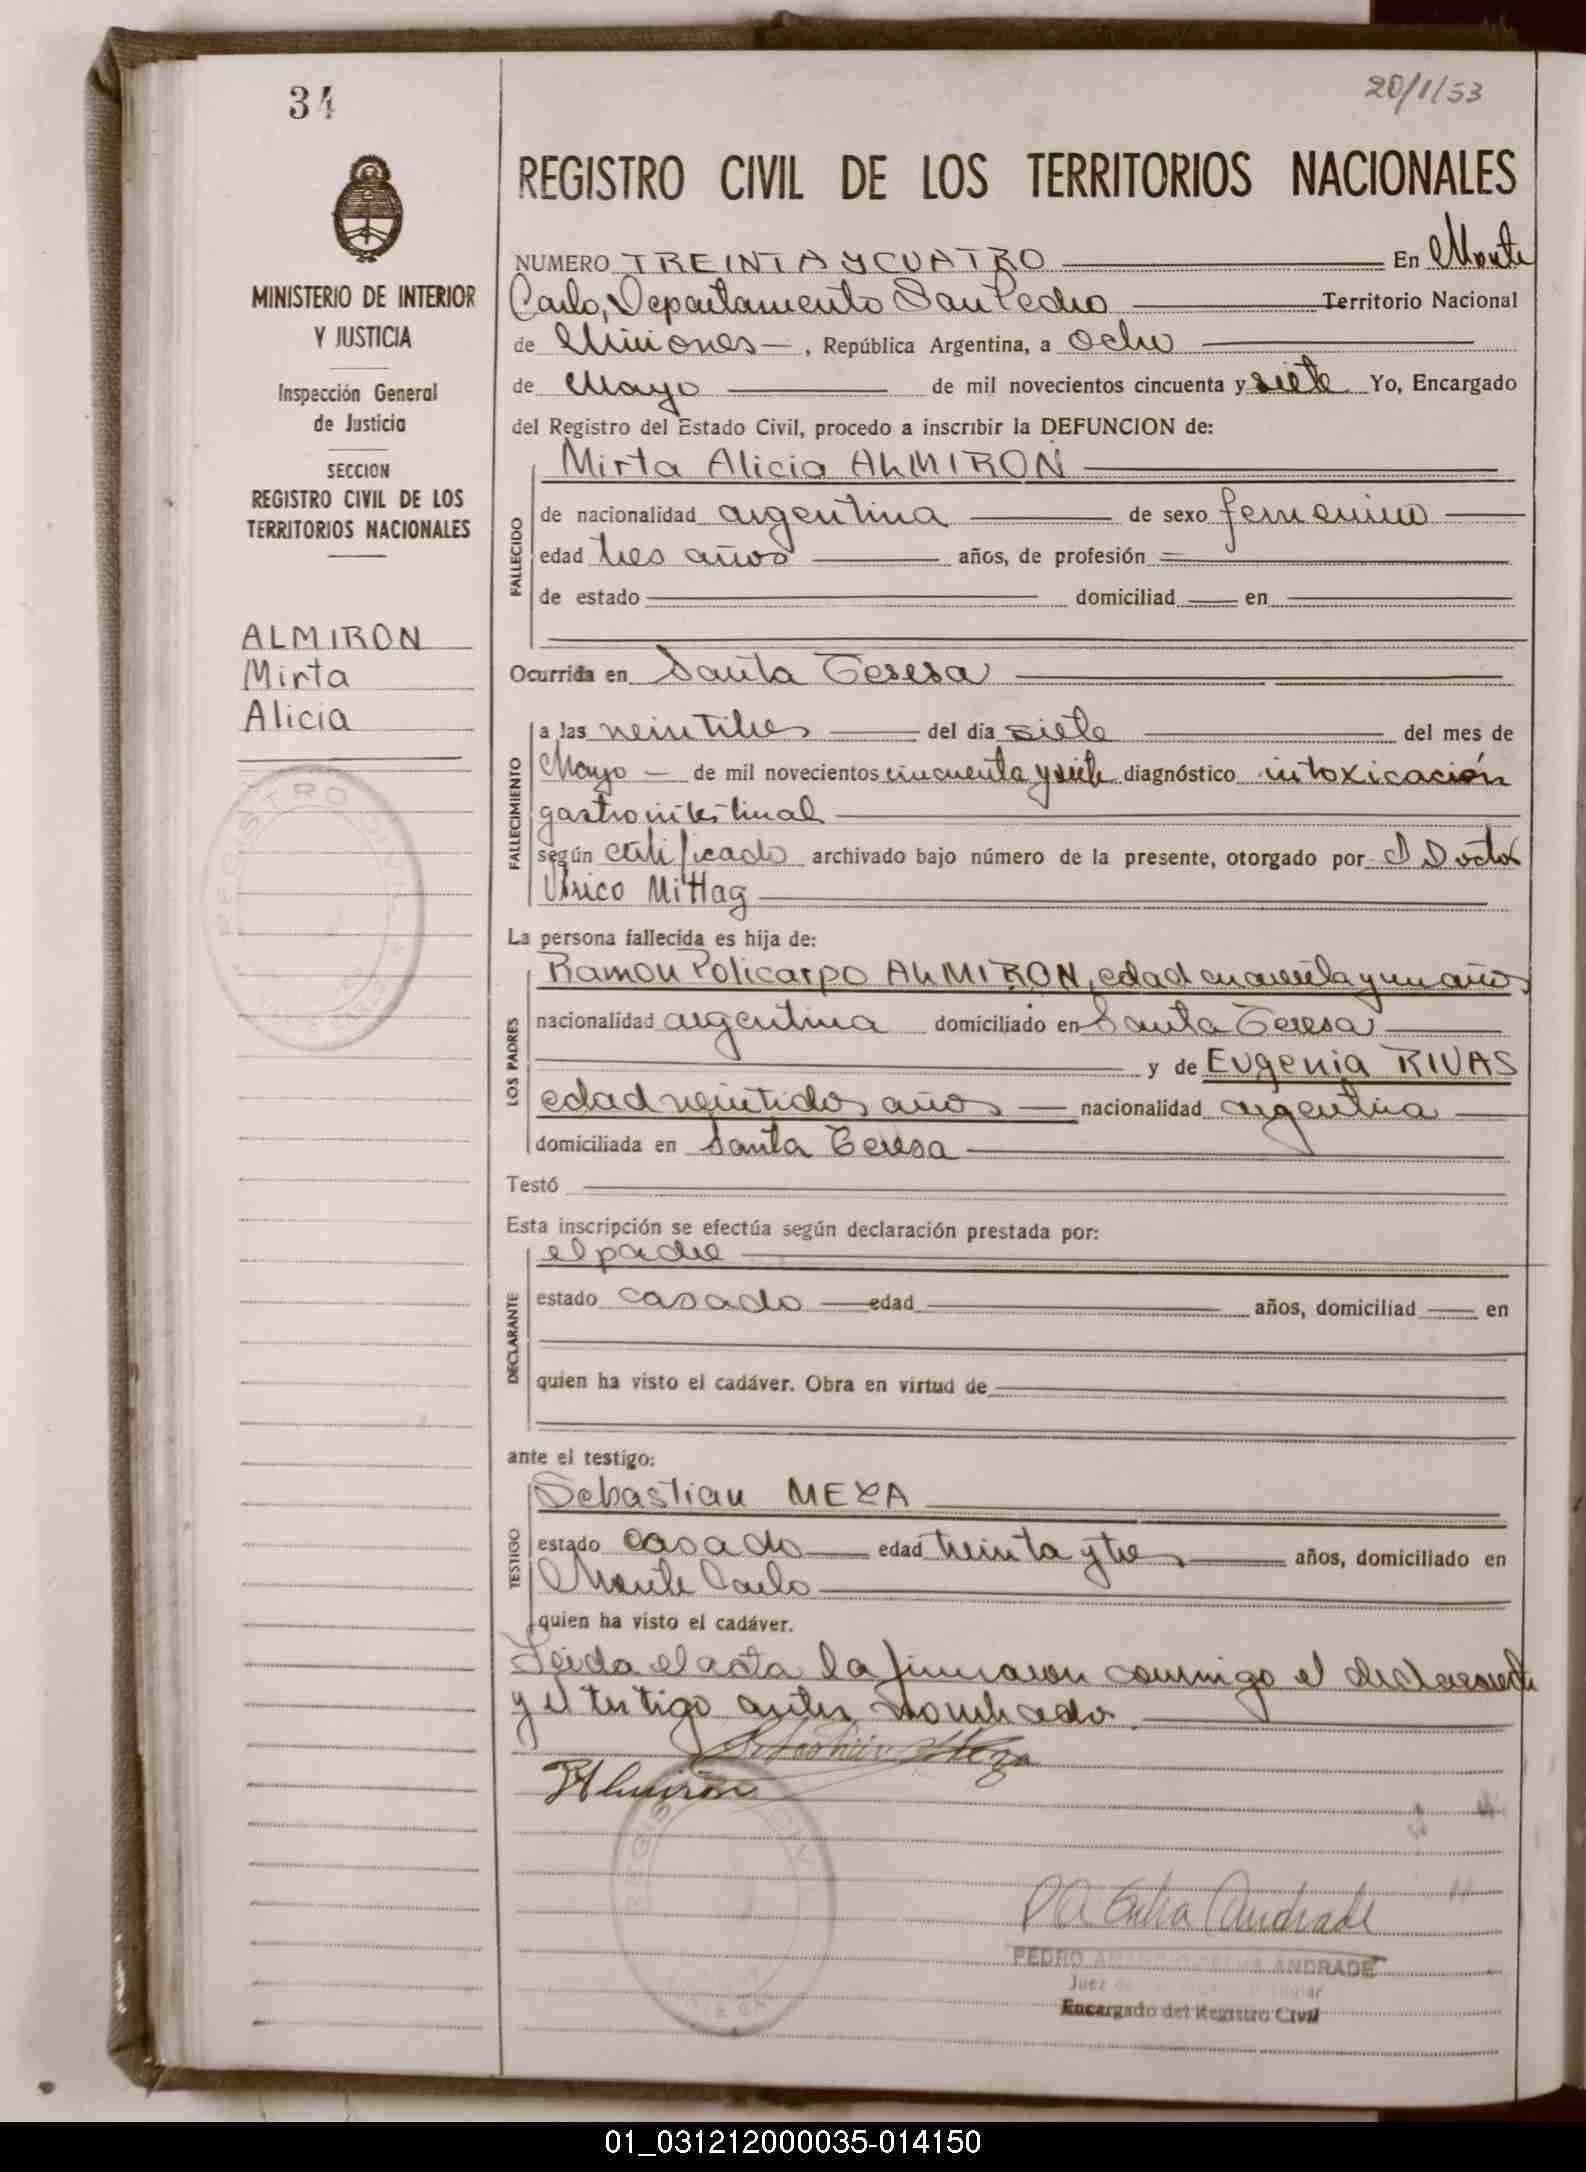 34
20/1/53
MINISTERIO DE INTERIOR
Y JUSTICIA
Inspección General
de Justicia
SECCION
REGISTRO CIVIL DE LOS
TERRITORIOS NACIONALES
ALMIRON
Mirta
Alicia
REGISTRO CIVIL
REGISTRO CIVIL DE LOS TERRITORIOS NACIONALES
NUMERO TREINTA Y CUATRO En Monte
Carlo, Departamento San Pedro Territorio Nacional
de Misiones, República Argentina, a ocho
de Mayo de mil novecientos cincuenta y siete Yo, Encargado
del Registro del Estado Civil, procedo a inscribir la DEFUNCION de:
Mirta Alicia ALMIRON
FALLECIDO
de nacionalidad argentina de sexo femenino
edad tres años años, de profesión
de estado domiciliad en
Ocurrida en Santa Teresa
FALLECIMIENTO
a las veintitres del día siete del mes de
Mayo de mil novecientos cincuenta y siete diagnóstico intoxicación
gastrointestinal
según certificado archivado bajo número de la presente, otorgado por el Doctor
Ulrico Mittag
La persona fallecida es hija de:
LOS PADRES
Ramon Policarpo ALMIRON, edad cuarenta y un años,
nacionalidad argentina domiciliado en Santa Teresa
y de Eugenia RIVAS
edad veintidos años nacionalidad argentina
domiciliada en Santa Teresa
Testó
Esta inscripción se efectúa según declaración prestada por:
DECLARANTE
el padre
estado casado edad años, domiciliad en
quien ha visto el cadáver. Obra en virtud de
ante el testigo:
TESTIGO
Sebastian MEZA
estado casado edad treinta y tres años, domiciliado en
Monte Carlo
quien ha visto el cadáver.
Leida el acta la firmaron conmigo el declarante
y el testigo antes nombrado.
Sebastian Meza
R Almirón
REGISTRO CIVIL
Andrade
PEDRO ANDRADE
Juez de
Encargado del Registro Civil
01_031212000035-014150